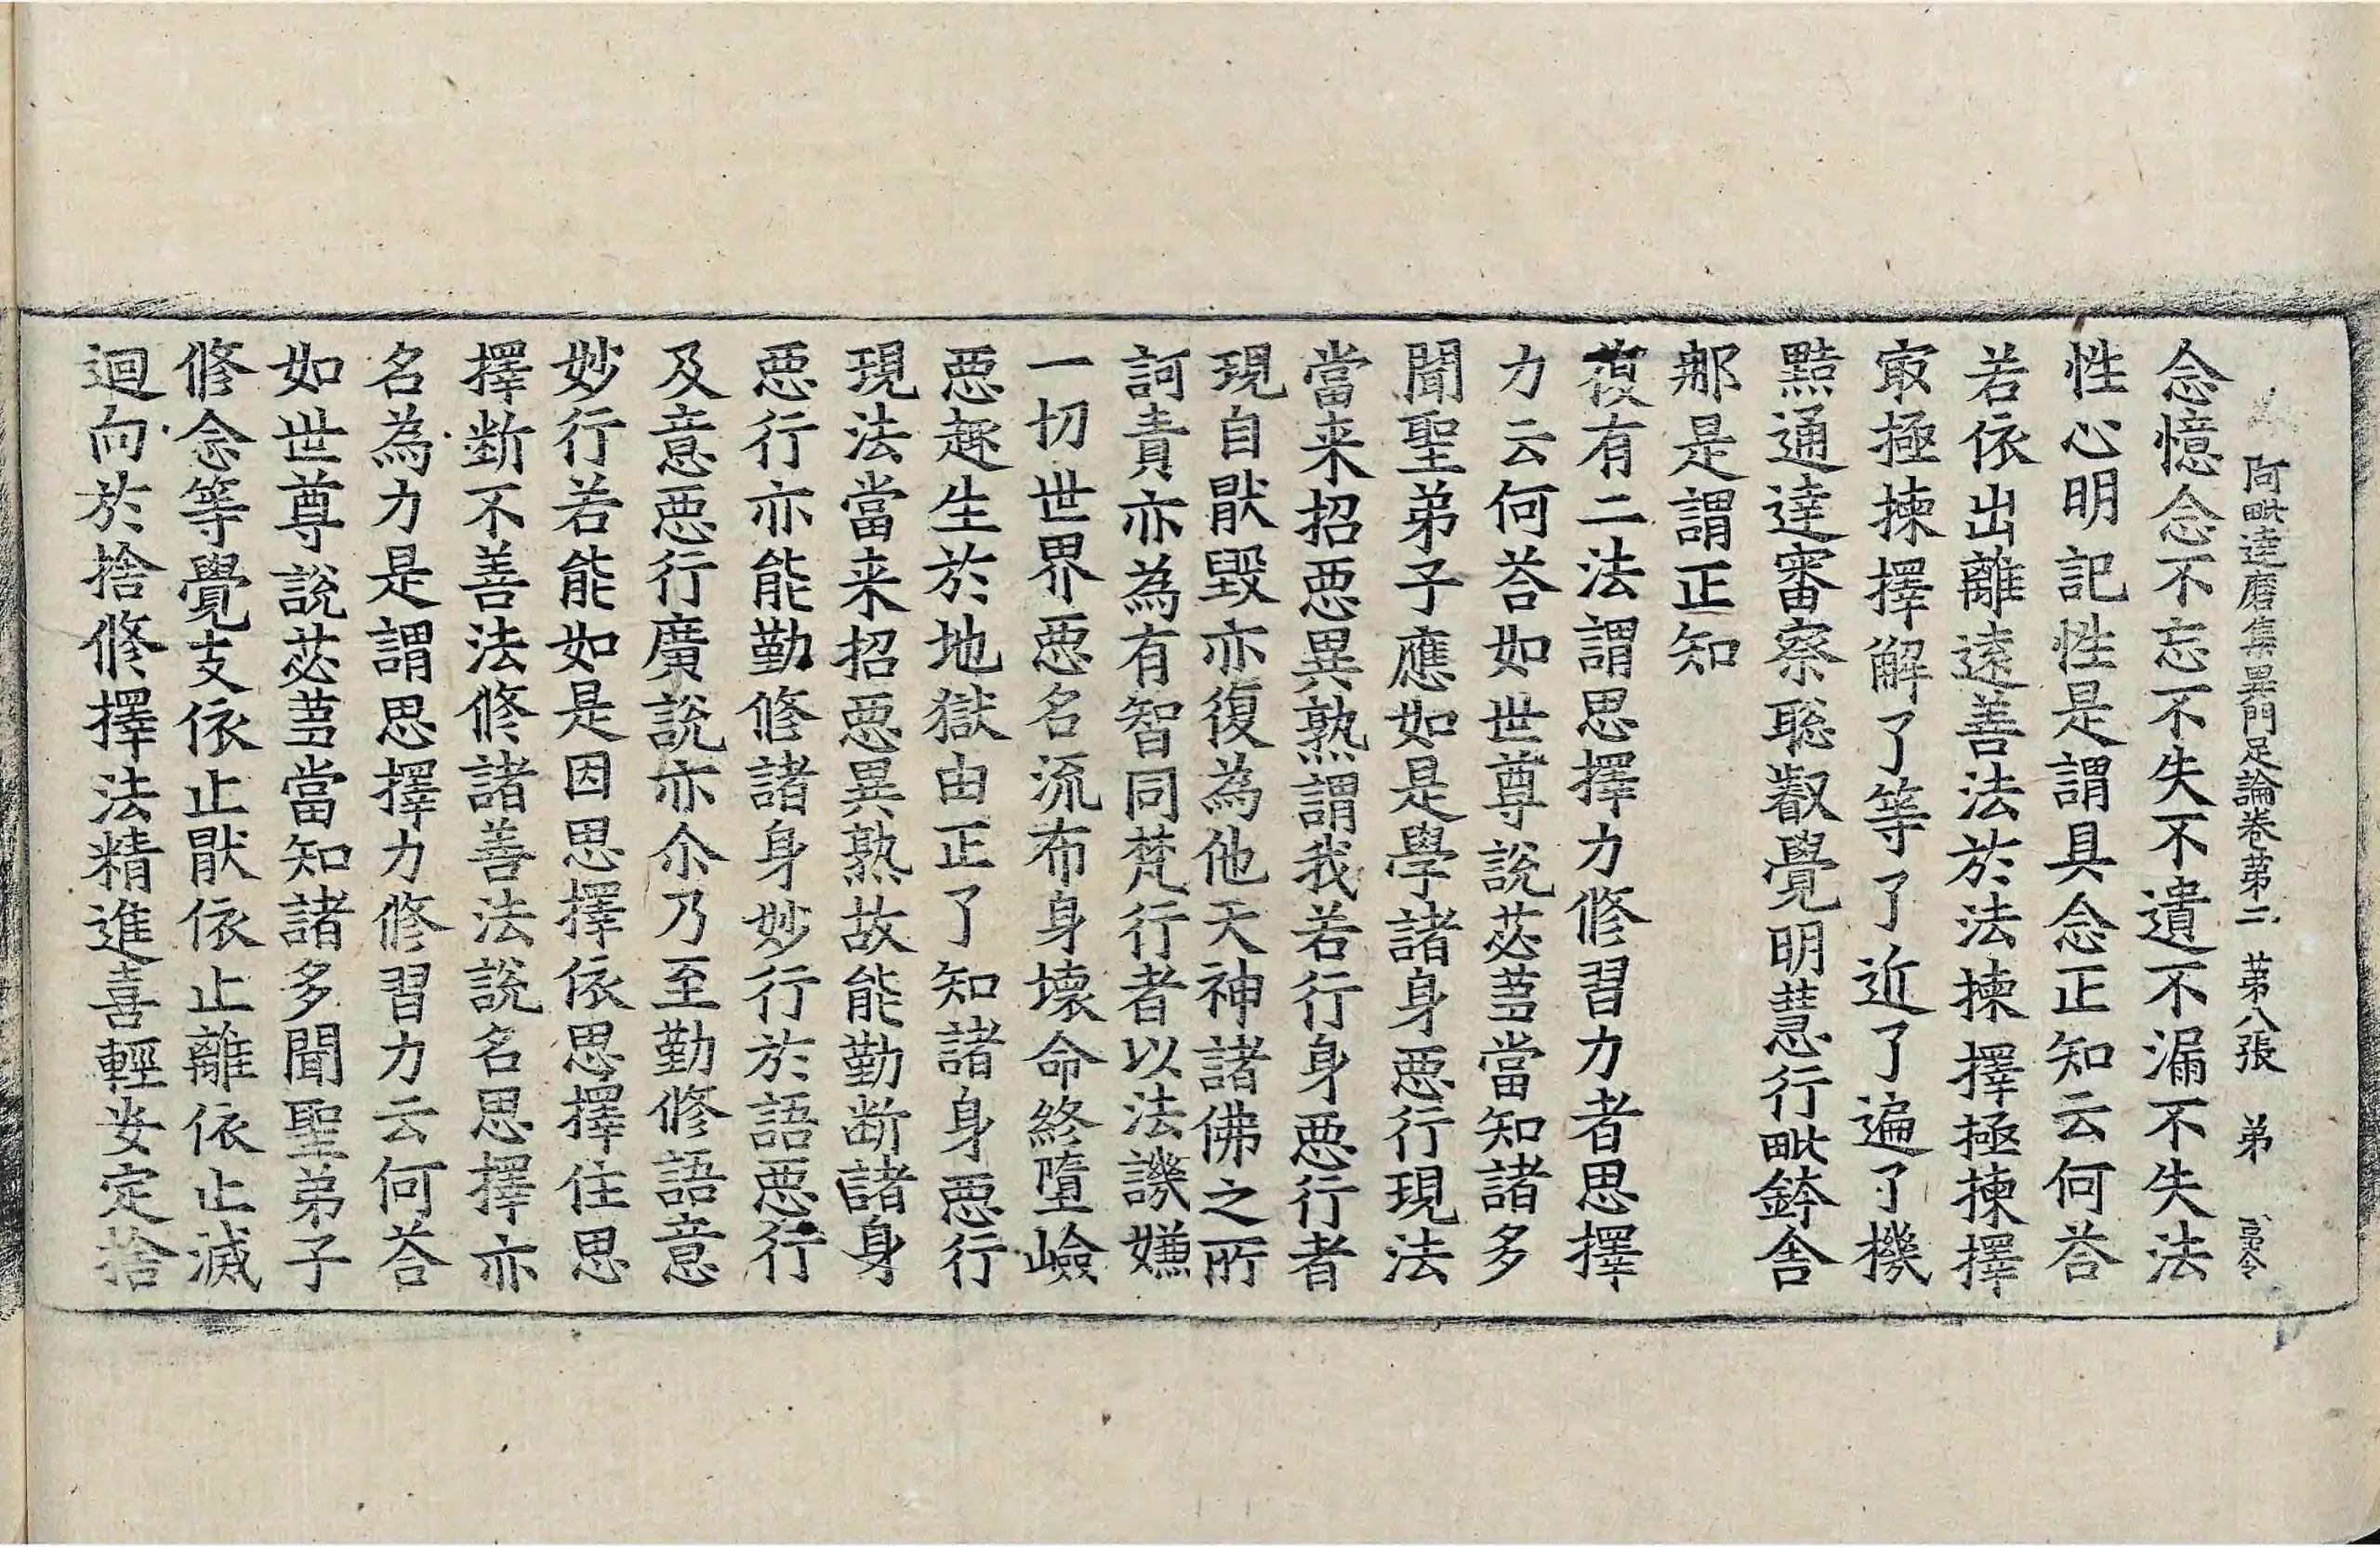 阿毗達磨集異門足論卷第二 第八張 弟
念憶念不忘不失不遺不漏不失法
性心明記性是謂具念正知云何荅
若依出離遠善法於法揀擇極揀擇
㝡極揀擇解了等了近了遍了機
黠通達審察聡叡覺明慧行毗鉢舍
那是謂正知
復有二法謂思擇力修習力者思擇
力云何荅如世尊說苾蒭當知諸多
聞聖弟子應如是學諸身惡行現法
當来招惡異熟謂我若行身惡行者
現自猒毀亦復為他天神諸佛之所
訶責亦為有智同梵行者以法譏嫌
一切世界惡名流布身壞命終墮嶮
惡趣生於地獄由正了知諸身惡行
現法當来招惡異熟故能勤断諸身
惡行亦能勤修諸身妙行於語惡行
及意惡行廣說亦尒乃至勤修語意
妙行若能如是因思擇依思擇住思
擇断不善法修諸善法說名思擇亦
名為力是謂思擇力修習力云何荅
如世尊說苾蒭當知諸多聞聖弟子
修念等覺支依止猒依止離依止滅
迴向於捨修擇法精進喜輕安定捨